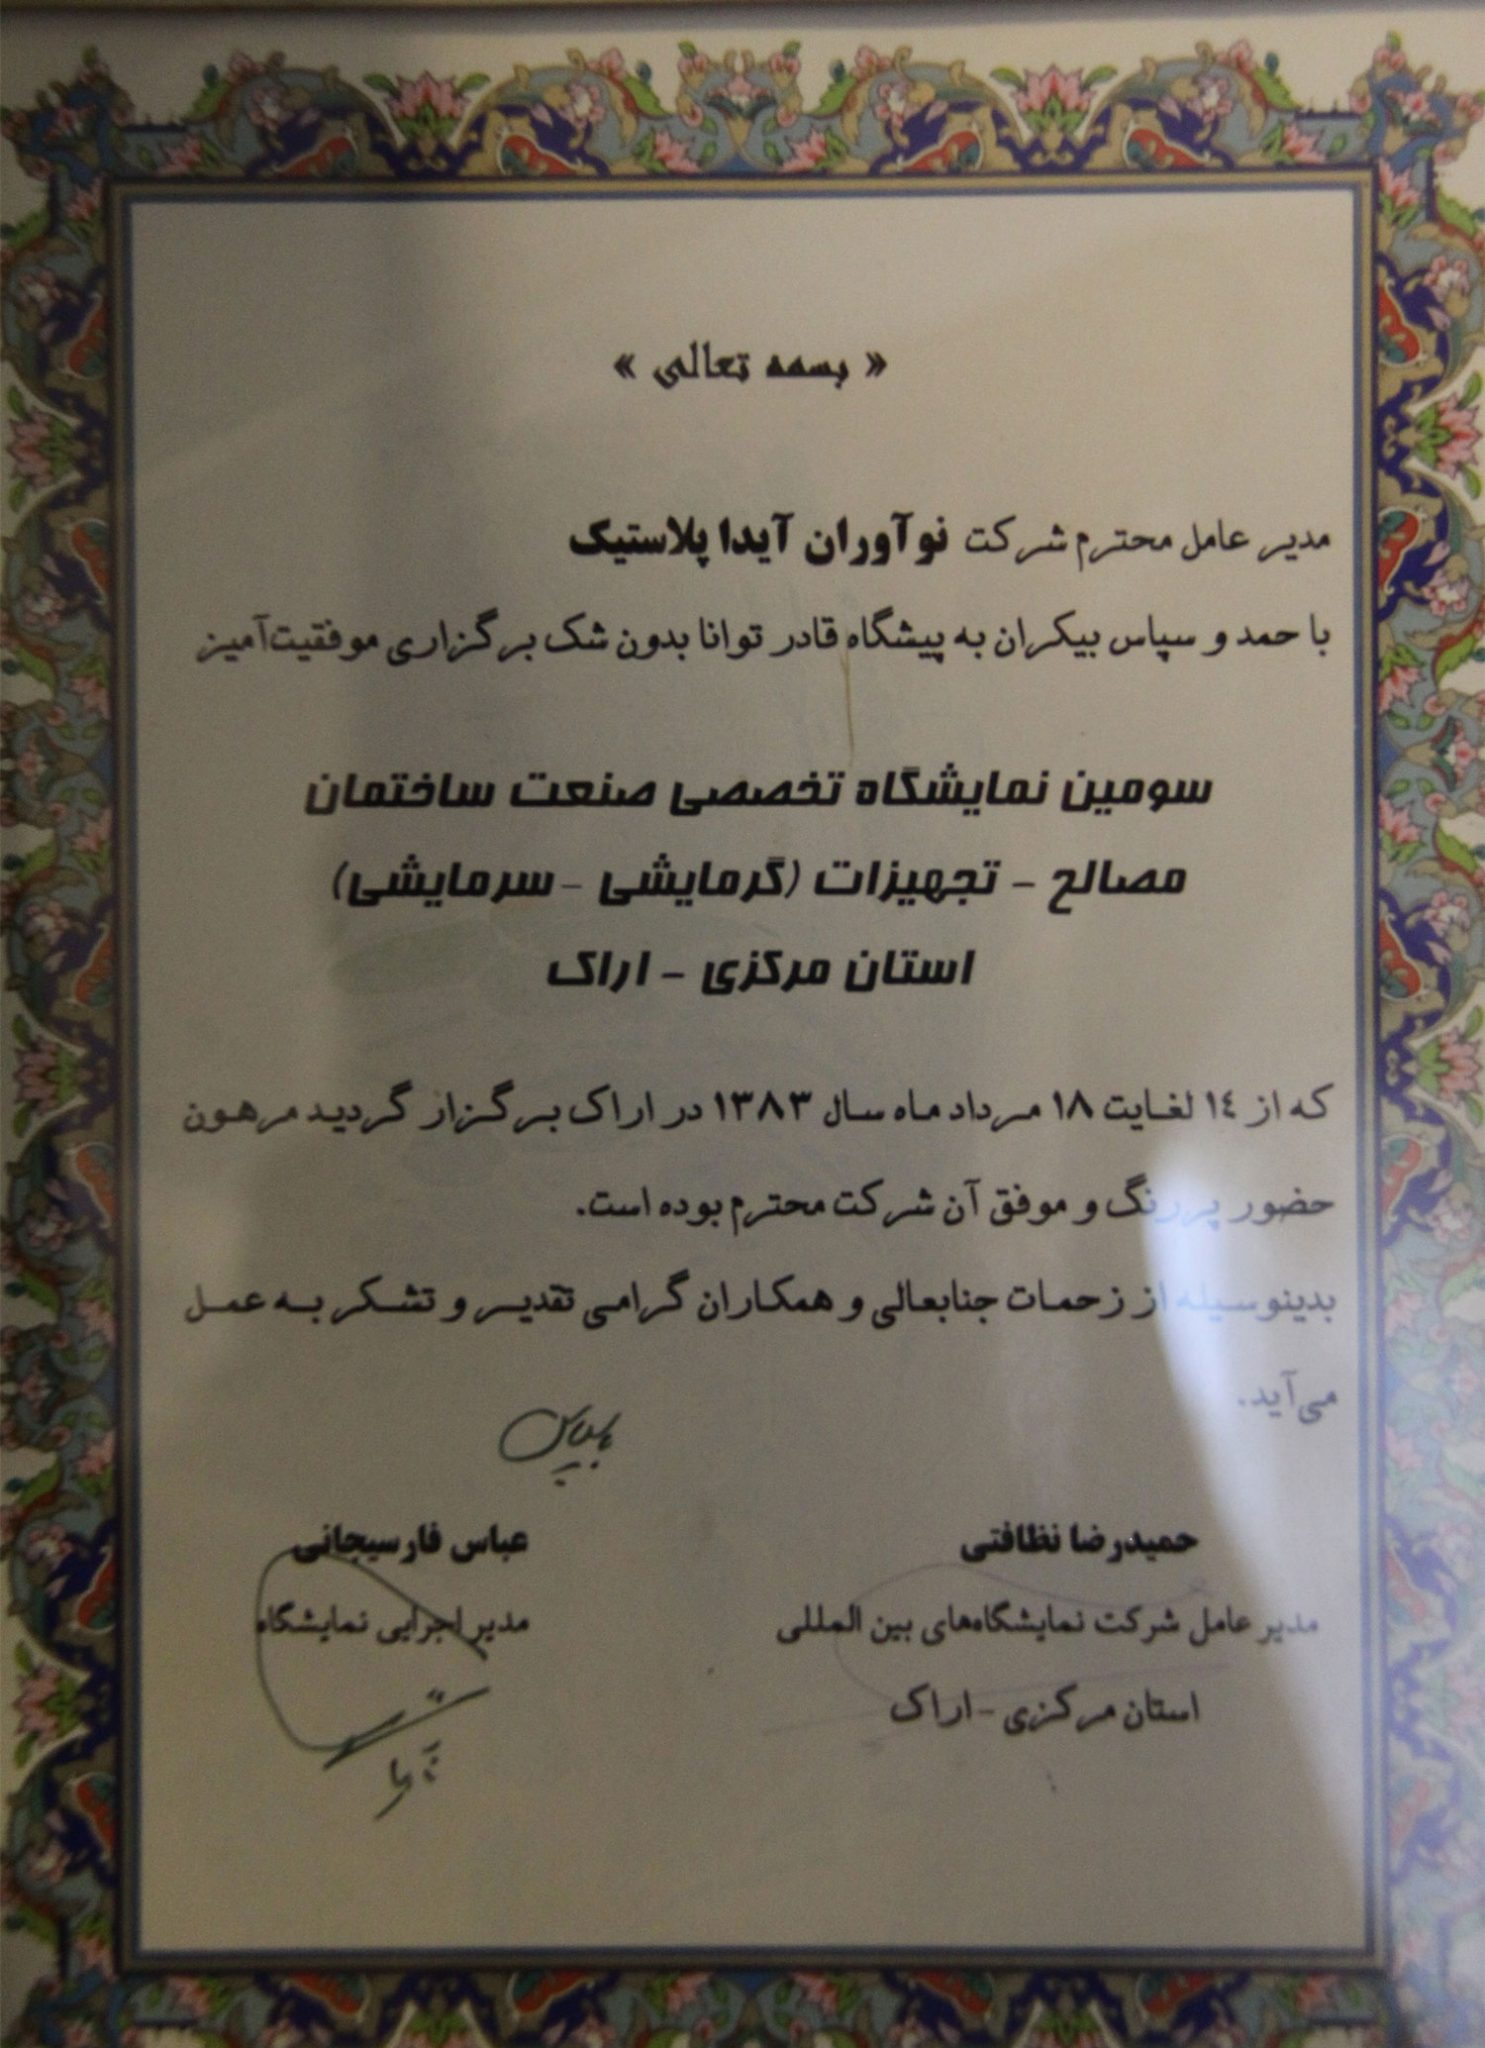 « بسمه تعالی »
مدیر عامل محترم شرکت نوآوران آیدا پلاستیک
با حمد و سپاس بیکران به پیشگاه قادر توانا بدون شک برگزاری موفقیت‌آمیز
سومین نمایشگاه تخصصی صنعت ساختمان
مصالح - تجهیزات (گرمایشی - سرمایشی)
استان مرکزی - اراک
که از ١٤ لغایت ١٨ مرداد ماه سال ١٣٨٣ در اراک برگزار گردید مرهون
حضور پررنگ و موفق آن شرکت محترم بوده است.
بدینوسیله از زحمات جنابعالی و همکاران گرامی تقدیر و تشکر به عمل
می‌آید.
باسپاس
حمیدرضا نظافتی
مدیر عامل شرکت نمایشگاه‌های بین المللی
استان مرکزی - اراک
عباس فارسیجانی
مدیر اجرایی نمایشگاه